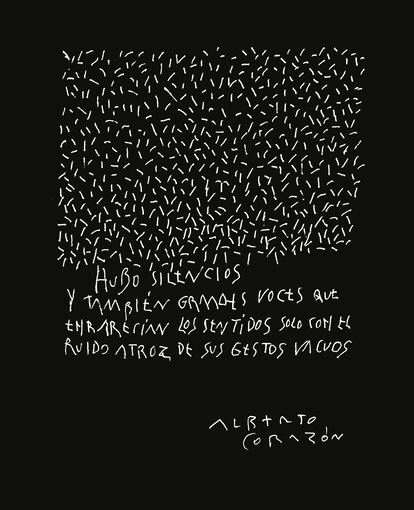 HUBO SILENCIOS
Y TAMBIÉN GRANDES VOCES QUE
ENRARECÍAN LOS SENTIDOS SOLO CON EL
RUIDO ATROZ DE SUS GESTOS VACUOS
ALBERTO
CORAZÓN